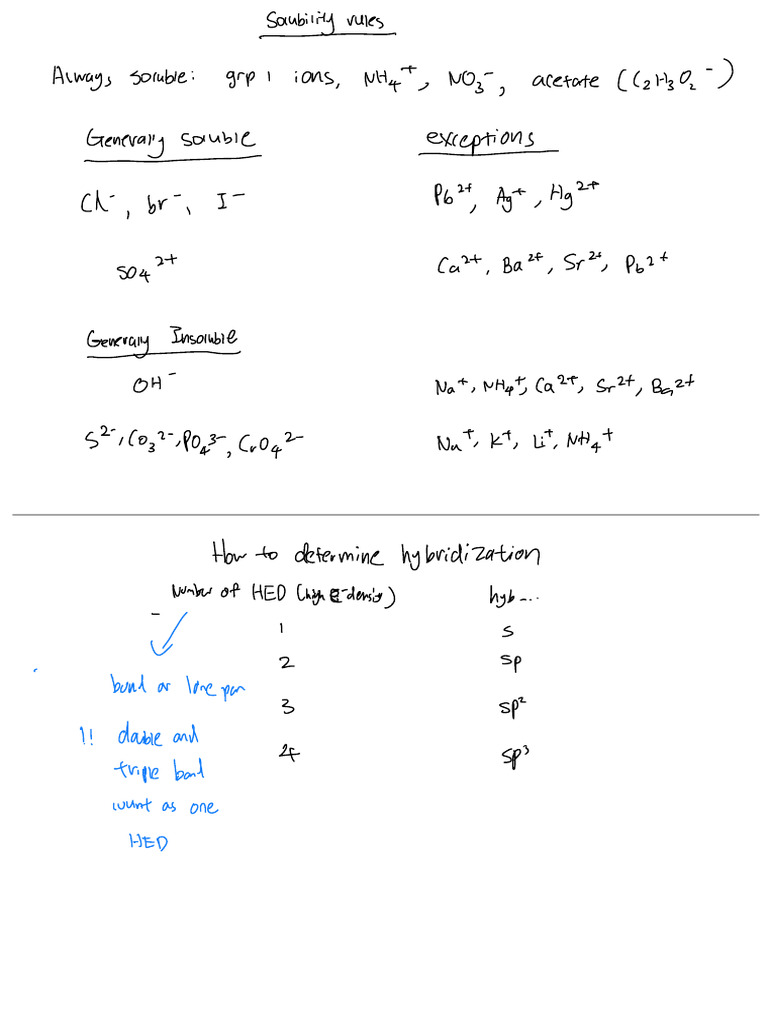 Solubility rules
Always soluble: grp 1 ions, NH₄⁺, NO₃⁻, acetate (C₂H₃O₂⁻)
Generally soluble exceptions
Cl⁻, br⁻, I⁻ Pb²⁺, Ag⁺, Hg²⁺
SO₄²⁺ Ca²⁺, Ba²⁺, Sr²⁺, Pb²⁺
Generally Insoluble
OH⁻ Na⁺, NH₄⁺, Ca²⁺, Sr²⁺, Ba²⁺
S²⁻, CO₃²⁻, PO₄³⁻, CrO₄²⁻ Na⁺, K⁺, Li⁺, NH₄⁺
How to determine hybridization
Number of HED (high e⁻ density) hyb...
1 s
2 sp
bond or lone pair
3 sp²
!! double and
4 sp³
triple bond
count as one
HED